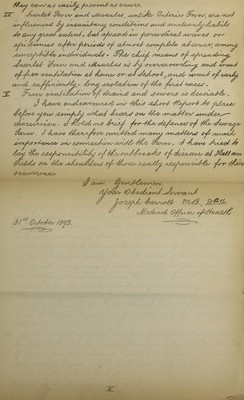 they can as easily prevent as cure.
IV Scarlet Fever and Measles, unlike Enteric Fever, are not
influenced by insanitary conditions and uncleanly habits
to any great extent, but spread in periodical waves or
epidemics after periods of almost complete absence, among
susceptible individuals. The chief means of spreading
Scarlet Fever and Measles is by overcrowding and want
of free ventilation at home or at school, and want of early
and sufficiently long isolation of the first cases.
V Free ventilation of drains and sewers is desirable.
I have endeavoured in this short Report to place
before you simply what bears on the matter under
discussion. I hold no brief for the defence of the sewage
Farm. I have therefore omitted many matters of much
importance in connection with the Farm. I have tried to
lay the responsibility of the outbreaks of disease at Hallam
Fields on the shoulders of those really responsible for their
occurrence
I am, Gentlemen,
Your Obedient Servant
Joseph Carroll M.B.,
Medical Officer of Health
31st October 1893.
V